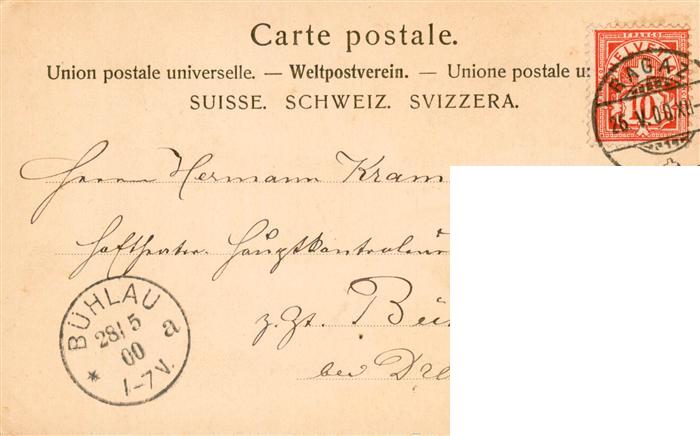 Carte postale.
Union postale universelle. — Weltpostverein. — Unione postale u
SUISSE. SCHWEIZ. SVIZZERA.
FRANCO
HELVE
10
RAGAZ
26. V. 00. XII
Herrn Hermann Kram
Hoftheater-Hauptkontroleur
z. Zt. Bü
bei Dre
BÜHLAU
28/5
00
a
* 1-7V.